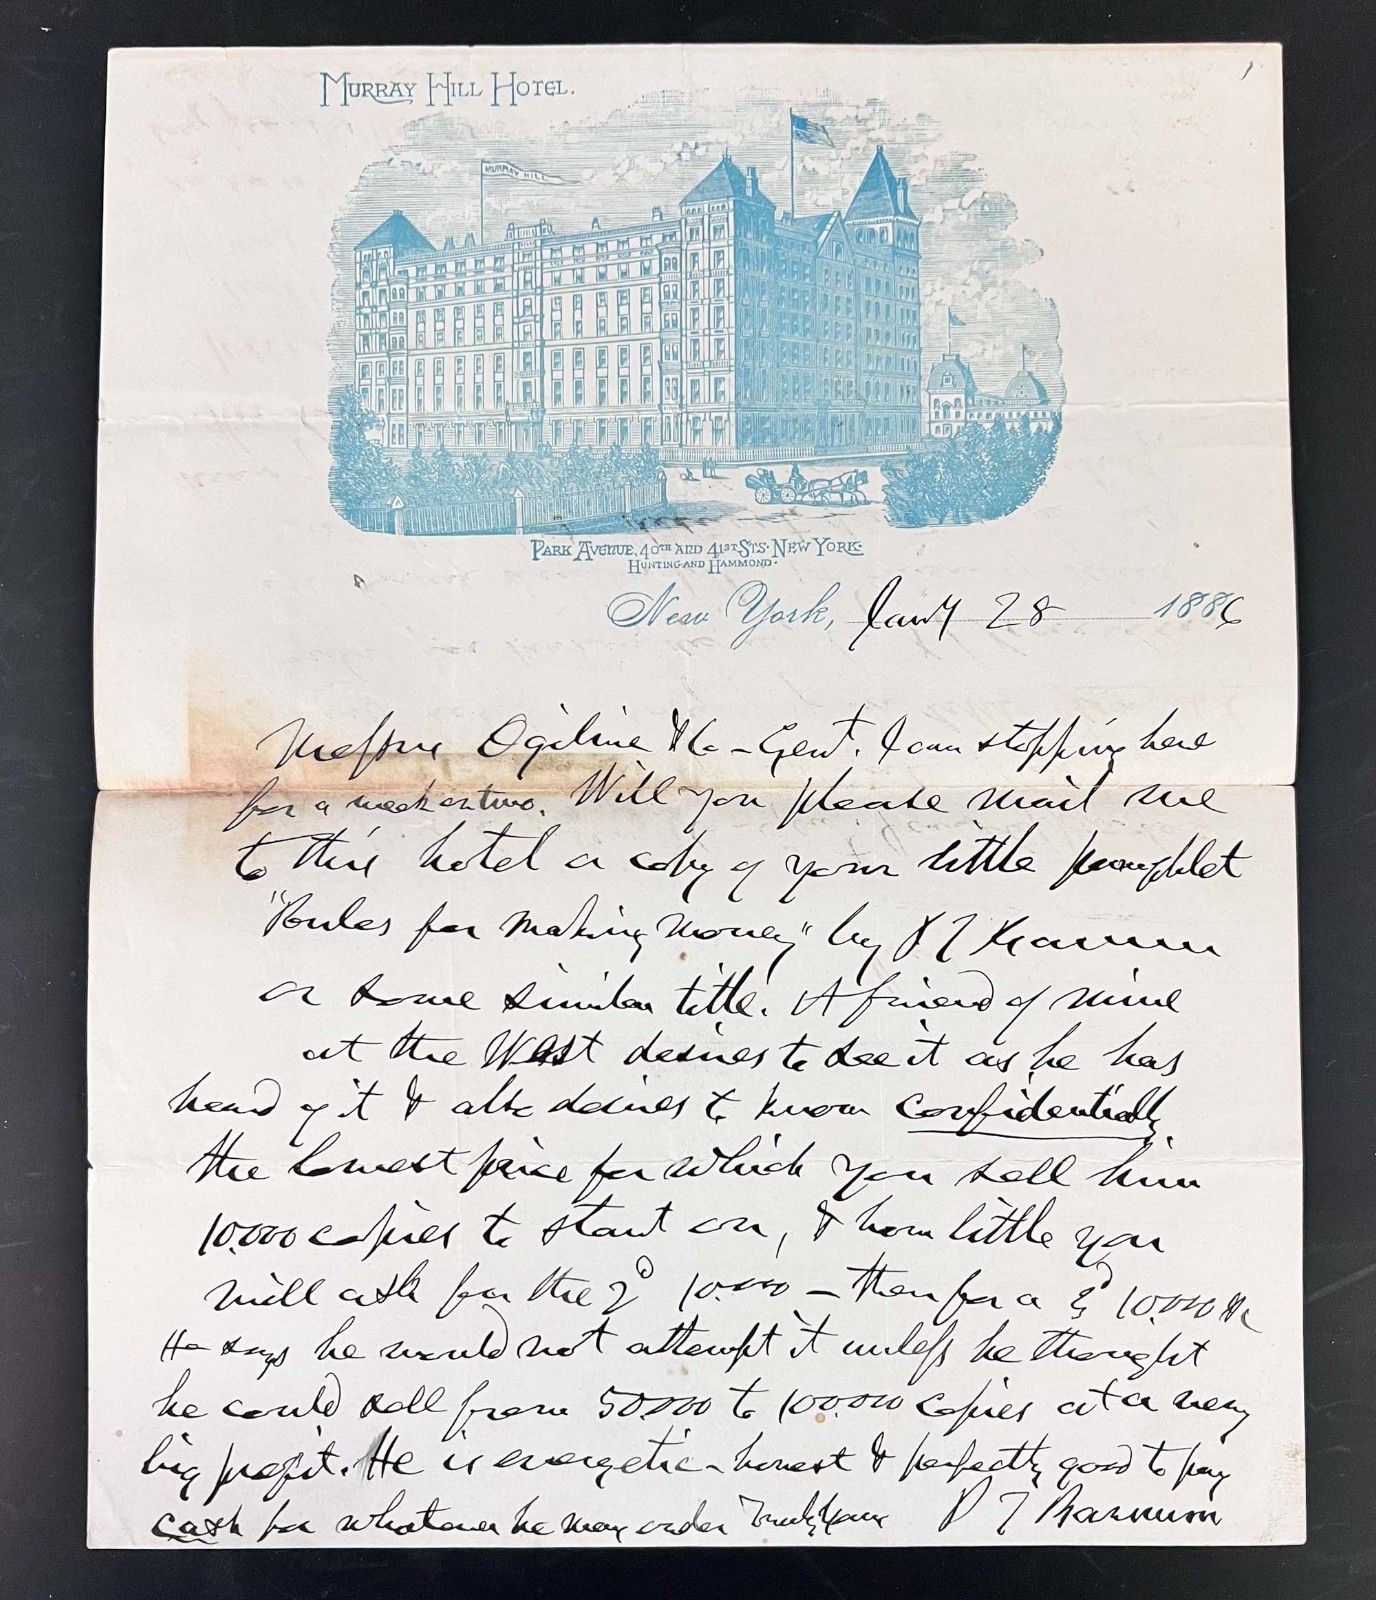 MURRAY HILL HOTEL.
MURRAY HILL
PARK AVENUE, 40TH AND 41ST STS. NEW YORK.
HUNTING AND HAMMOND.
New York, Jany 28 1886
Messrs Ogilvie & Co - Gent. I am stopping here
for a week or two. Will you please mail me
to this hotel a copy of your little pamphlet
"Rules for making money" by P T Barnum
or some similar title. A friend of mine
at the West desires to see it as he has
heard of it & also desires to know confidentially
the lowest price for which you sell him
10.000 copies to start on, & how little you
will ask for the 2d 10.000 – then for a 3d 10.000 &c
He says he would not attempt it unless he thought
he could sell from 50.000 to 100.000 copies at a very
big profit. He is energetic - honest & perfectly good to pay
cash for whatever he may order Truly Yours P T Barnum